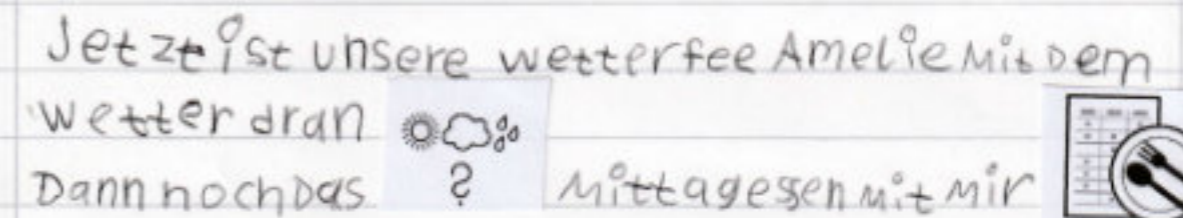 Jetzt ist unsere wetterfee Amelie Mit Dem
wetter dran
?
Dann noch Das Mittagessen Mit Mir